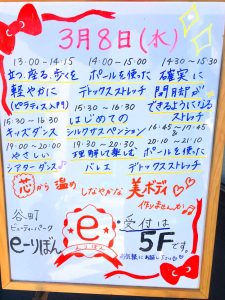 3月8日(水)
13:00-14:15 14:00-15:00 14:30-15:30
立つ、座る、歩くを ポールを使った 確実に
軽やかに デトックスストレッチ 開脚が
(ピラティス入門) できるようになる
ストレッチ
15:30-16:30 15:30~16:30 16:45~17:45
キッズダンス はじめての
シルクサスペンション
19:00-20:00 19:30-20:30 20:10-21:10
やさしい 理解して楽しむ ポールを使った
シアターダンス♪ バレエ デトックスストレッチ
芯から温め しなやかな 美ボディ♡♡
作りませんか♪
谷町
ビューティーパーク
e-りぼん
e
りぼん
・受付は
5Fです。
お気軽にお越し下さい